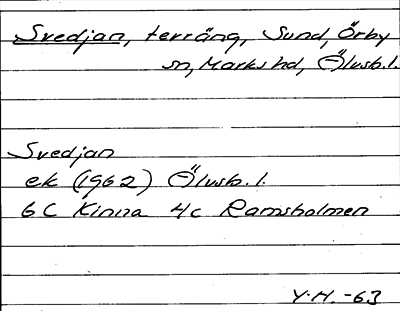 Svedjan, terräng, Sund, Örby
sn, Marks hd, Älvsb.l.
Svedjan
ek (1962) Älvsb. l.
6 C Kinna 4c Ramsholmen
Y.H. -63